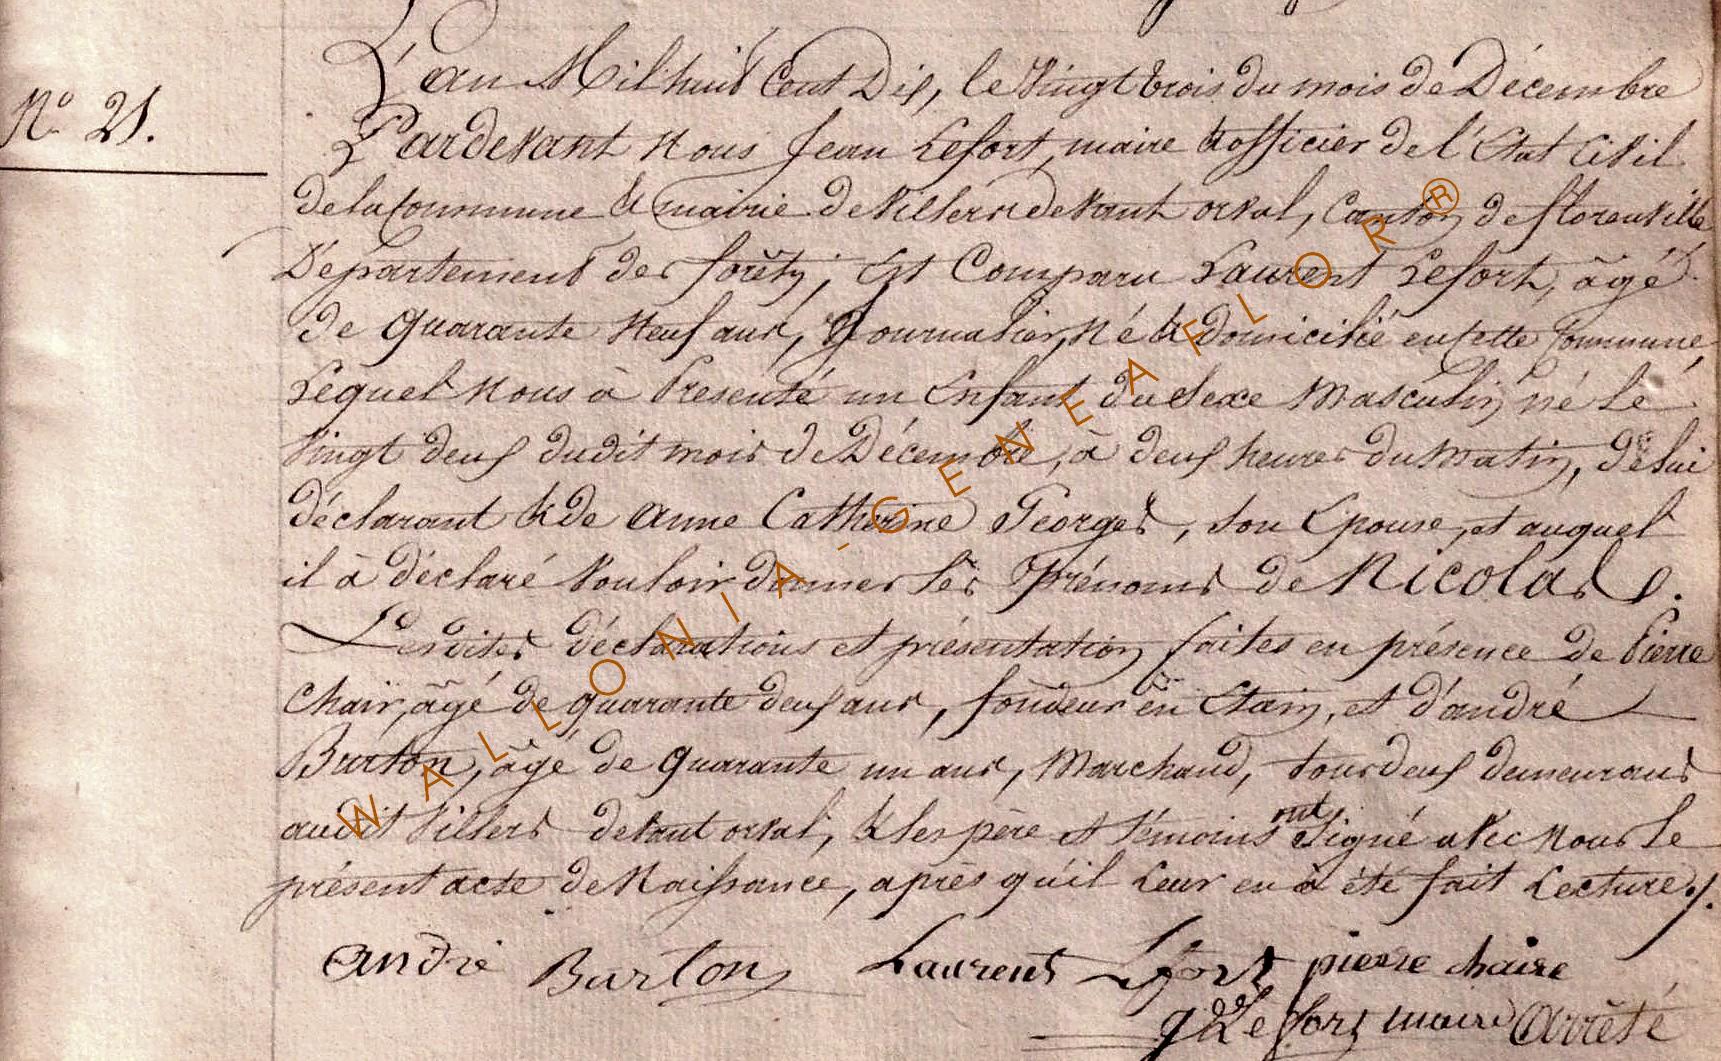 N° 21.
L'an Mil huit Cent Dix, le Vingt trois du mois de Décembre
Pardevant Nous Jean Lefort, maire & officier de l'Etat Civil
de la Commune & mairie de Villers devant orval, Canton de florenville
Département des forêts, Est Comparu Laurent Lefort, âgé
de quarante Neuf ans, Journalier, Né & domicilié en cette Commune,
Lequel Nous à Présenté un Enfant du Sexe Masculin né Le
Vingt deux dudit mois de Décembre, à deux heures du Matin, de lui
déclarant & de anne Catherine Georges, son Epouse, et auquel
il à déclaré Vouloir donner les Prénoms de Nicolas.
Lesdites déclarations et présentation faites en présence de Pierre
Chair, âgé de quarante deux ans, fondeur en Etain, et d'andré
Burton, âgé de quarante un ans, Marchand, tous deux demeurans
audit Villers devant orval, & les père et témoins ont Signé avec Nous le
présent acte de Naissance, après qu'il Leur en à été fait Lecture.
andré Burton Laurent Lefort pierre chaire
Lefort maire arrêté
WALLONIA-GENEAFLOR®